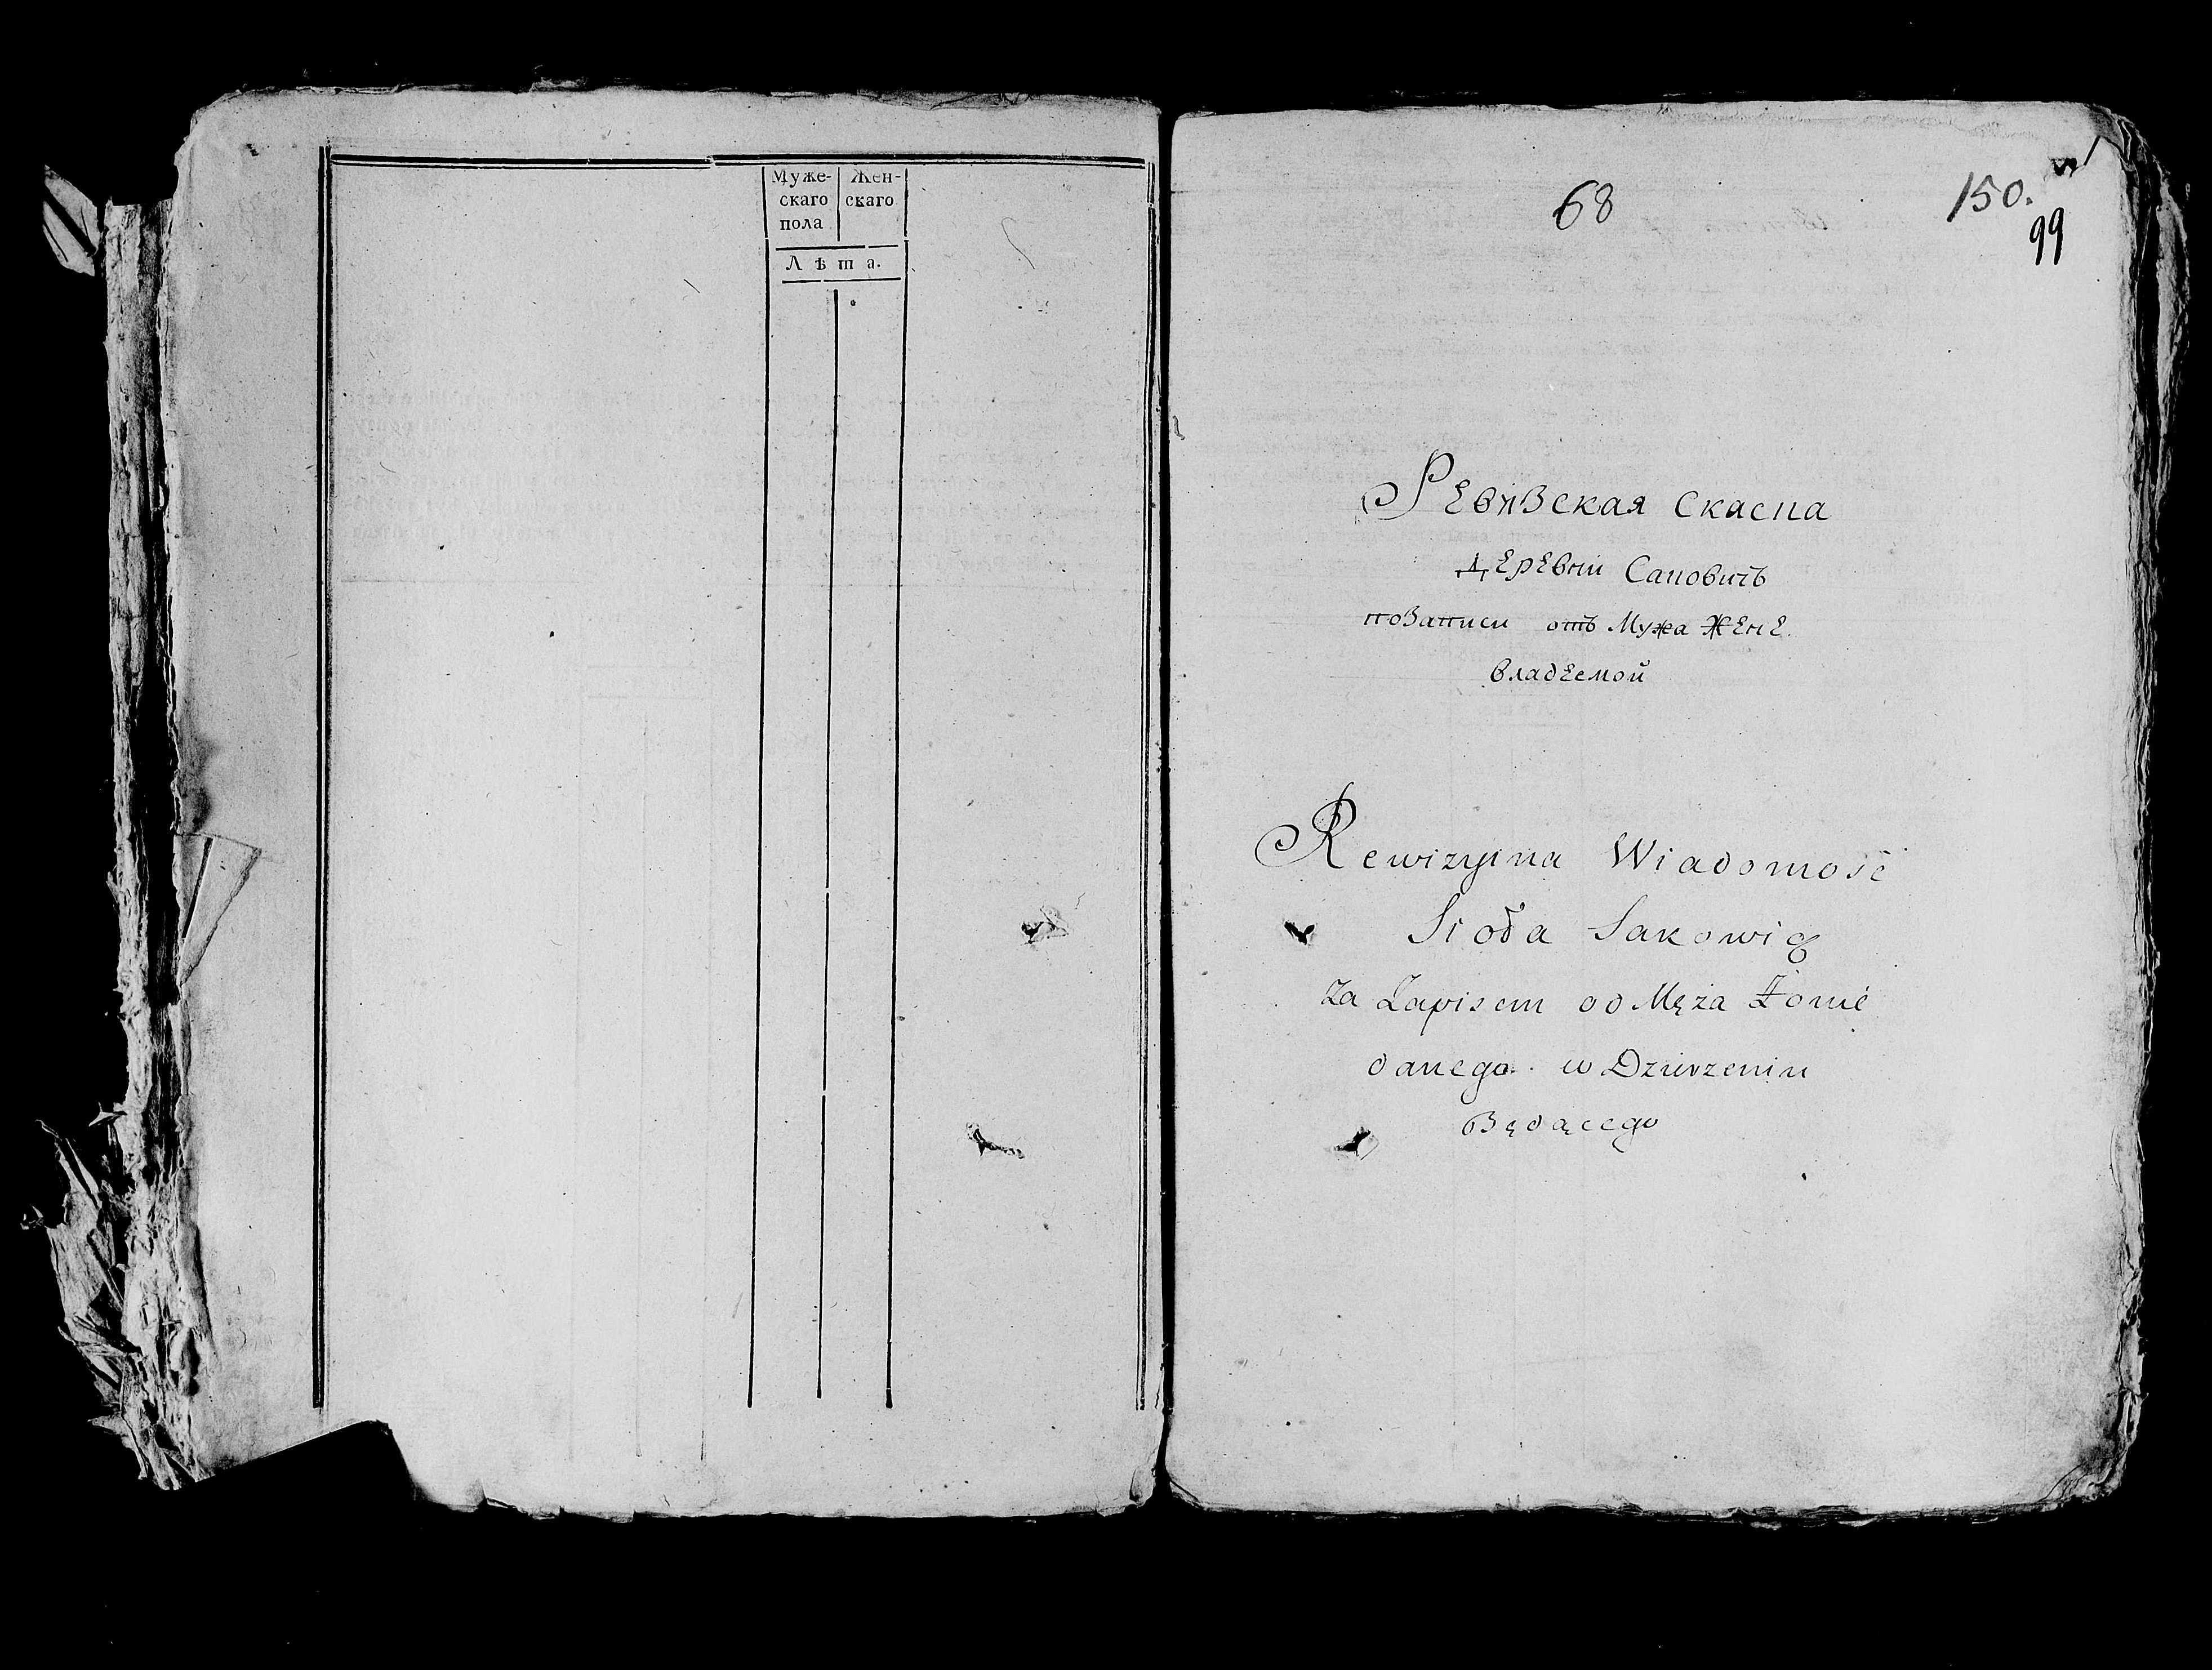 Муже- Жен-
скаго скаго
пола
Лѣта.
68
150.
99
Ревизская скаска
Деревни Саковичъ
по Записи отъ Мужа Женѣ
владѣемой
Rewizyina Wiadomość
Sioła Sakowicz
za Zapisem od Męża Żonie
danego w Dzierzeniu
Będącego